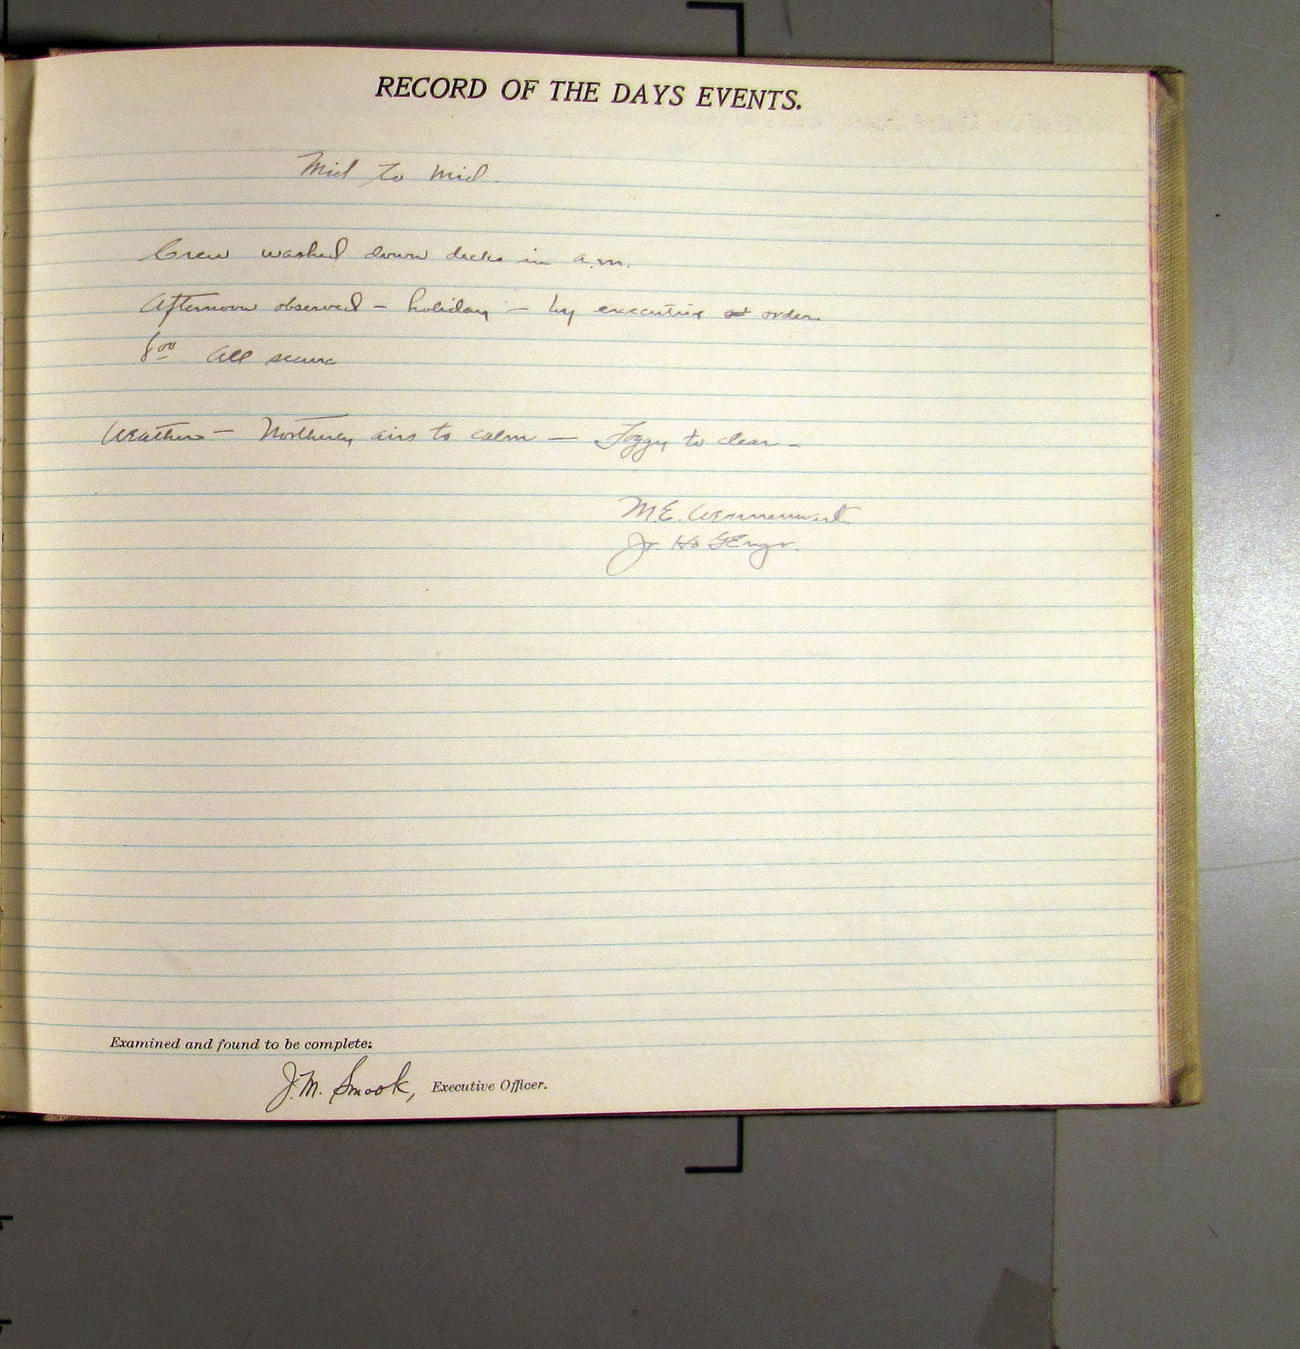 RECORD OF THE DAYS EVENTS.
Mid to Mid.
Crew washed down decks in a.m.
Afternoon observed - holiday - by executive order.
8⁰⁰ All secure
Weather - Northerly airs to calm - Foggy to clear -
M.E. Wennermark
Jr. H & G Engr.
Examined and found to be complete:
J.M. Smook, Executive Officer.